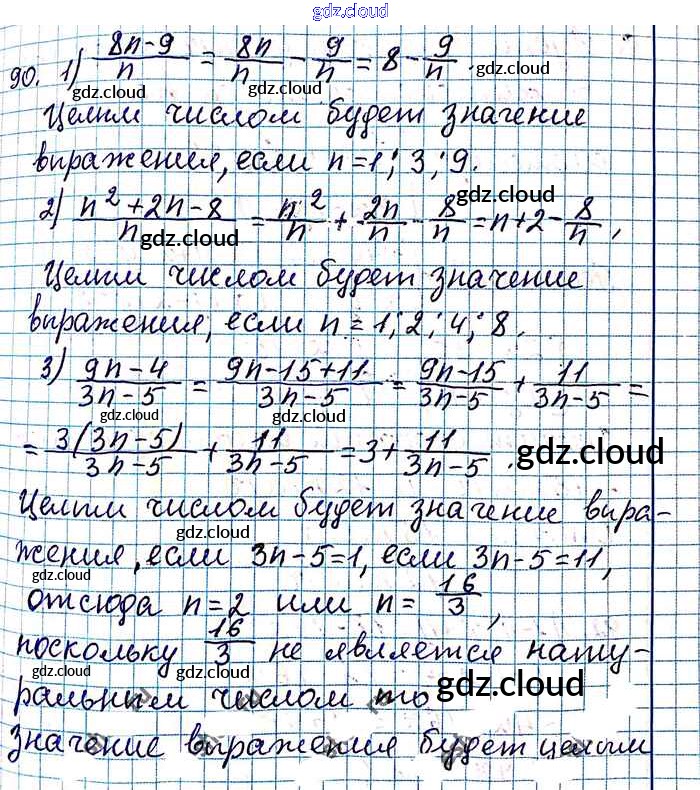 gdz.cloud
90. 1) (8n-9)/n = 8n/n - 9/n = 8 - 9/n.
gdz.cloud gdz.cloud gdz.cloud
Целым числом будет значение
gdz.cloud gdz.cloud
выражения, если n=1; 3; 9.
gdz.cloud
2) (n²+2n-8)/n = n²/n + 2n/n - 8/n = n+2 - 8/n,
gdz.cloud gdz.cloud
Целым числом будет значение
выражения, если n = 1; 2; 4; 8.
3) (9n-4)/(3n-5) = (9n-15+11)/(3n-5) = (9n-15)/(3n-5) + 11/(3n-5) =
gdz.cloud gdz.cloud
= 3(3n-5)/(3n-5) + 11/(3n-5) = 3 + 11/(3n-5).
gdz.cloud
Целым числом будет значение выра-
gdz.cloud gdz.cloud
жения, если 3n-5=1, если 3n-5=11,
gdz.cloud gdz.cloud
отсюда n=2 или n= 16/3,
поскольку 16/3 не является нату-
gdz.cloud gdz.cloud gdz.cloud
ральным числом то
значение выражения будет целым